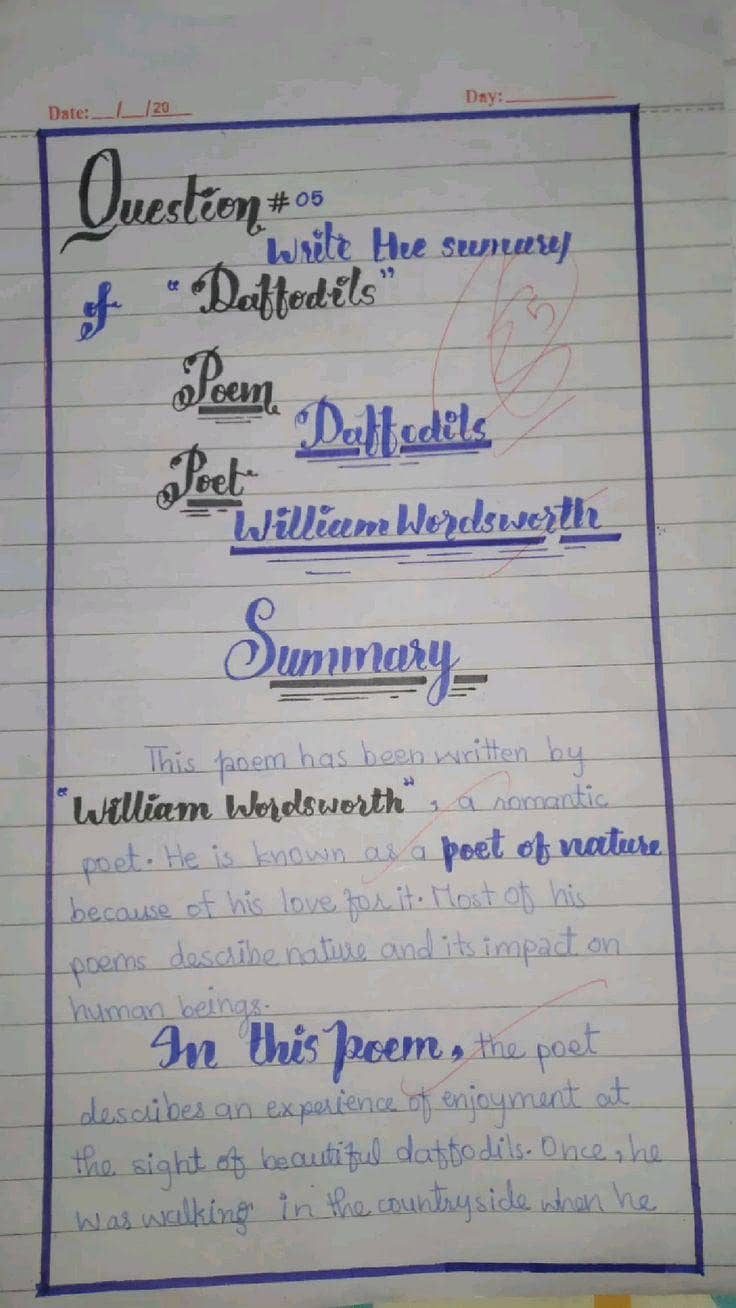 Date: __/__/20__
Day:
Question # 05
Write the sumary
of "Daffodils"
Poem
Daffodils
Poet
William Wordsworth
Summary
This poem has been written by
"William Wordsworth", a romantic
poet. He is known as a poet of nature
because of his love for it. Most of his
poems describe nature and its impact on
human beings.
In this poem, the poet
describes an experience of enjoyment at
the sight of beautiful daffodils. Once, he
was walking in the countryside when he